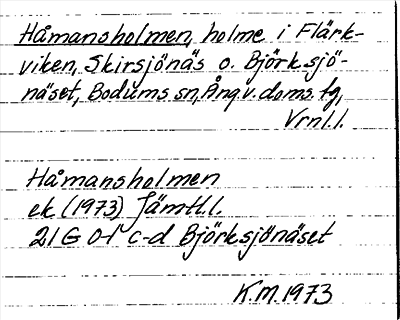 Håmansholmen, holme i Flärk-
viken, Skirsjönäs o. Björksjö-
näset, Bodums sn, Ång.v. doms. tg,
Vrnl.l.
Håmansholmen
ek (1973) Jämtl.l.
21G 0-1 c-d Björksjönäset
K.M. 1973